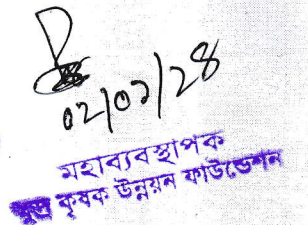 ০২/০১/২৪
মহাব্যবস্থাপক
ক্ষুদ্র কৃষক উন্নয়ন ফাউন্ডেশন